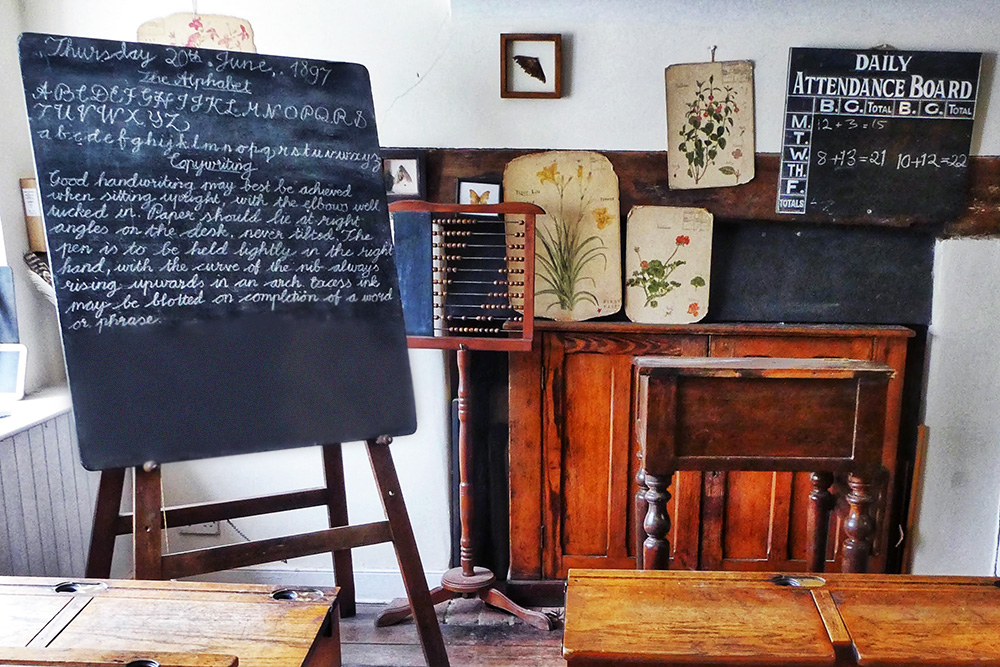 Thursday 20th June, 1897
The Alphabet
A B C D E F G H I J K L M N O P Q R S
T U V W X Y Z
a b c d e f g h i j k l m n o p q r s t u v w x y z
Copywriting
Good handwriting may best be achieved
when sitting upright, with the elbows well
tucked in. Paper should lie at right
angles on the desk, never tilted. The
pen is to be held lightly in the right
hand, with the curve of the nib always
rising upwards in an arch. Excess ink
may be blotted on completion of a word
or phrase.
DAILY
ATTENDANCE BOARD
B. G. TOTAL B. G. TOTAL
M. 12 + 3 = 15
T.
W. 8 + 13 = 21 10 + 12 = 22
TH.
F.
TOTALS